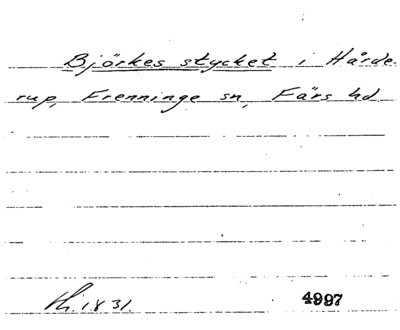 Björkes stycket i Hårde-
rup, Frenninge sn, Färs hd
1831. 4997